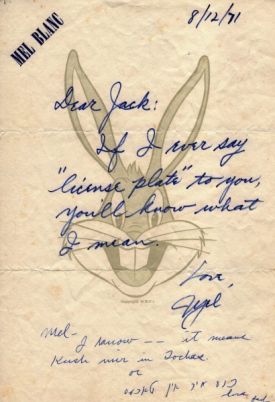 8/12/71
MEL BLANC
Dear Jack:
If I ever say
"license plate" to you,
you'll know what
I mean.
Love,
Mel
Mel-
I know -- it means
Kush mir in Toches.
or
קוש מיר אין
Love